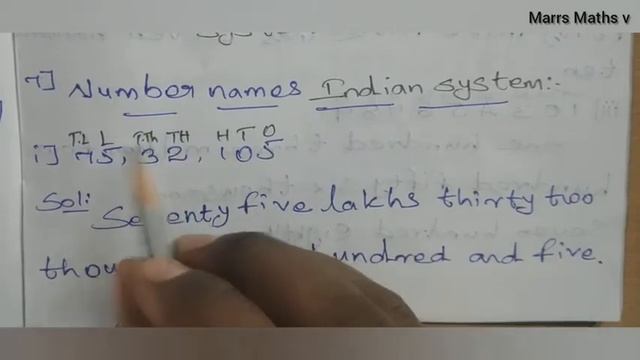 Marrs Maths v
7] Number names Indian system:-
T.L L T.Th TH H T O
i] 75, 32, 105
Sol: Seventy five lakhs thirty two
hundred and five.